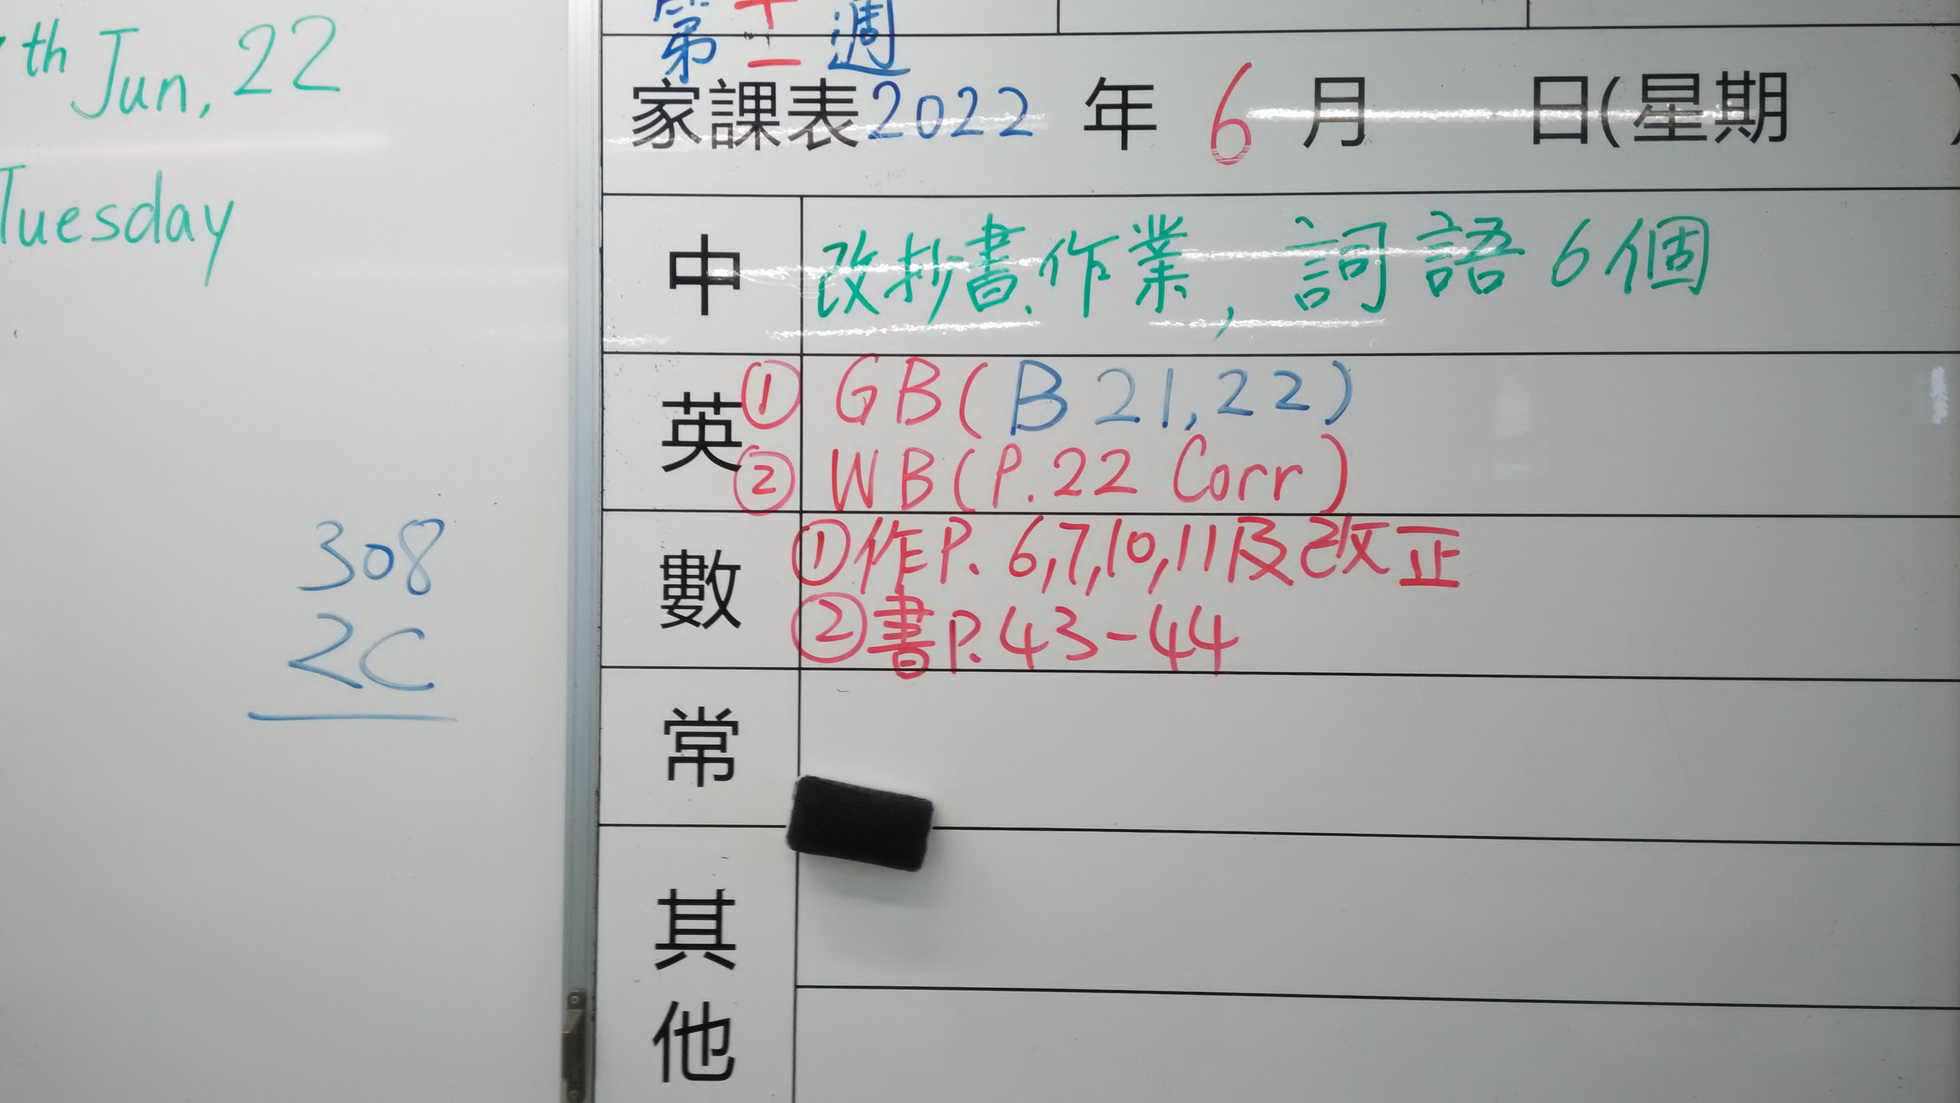 th Jun, 22
Tuesday
308
2C
第十一週
家課表2022 年 6 月 日(星期 )
中 改抄書、作業, 詞語6個
英 ① GB(B 21,22)
② WB(P.22 Corr)
數 ①作P. 6,7,10,11及改正
②書P.43-44
常
其
他